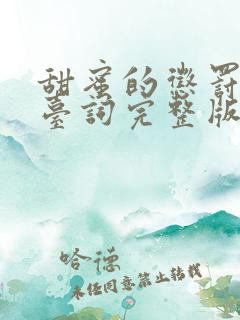 甜蜜的懲罰
臺詞完整版
哈德
未經同意禁止轉載